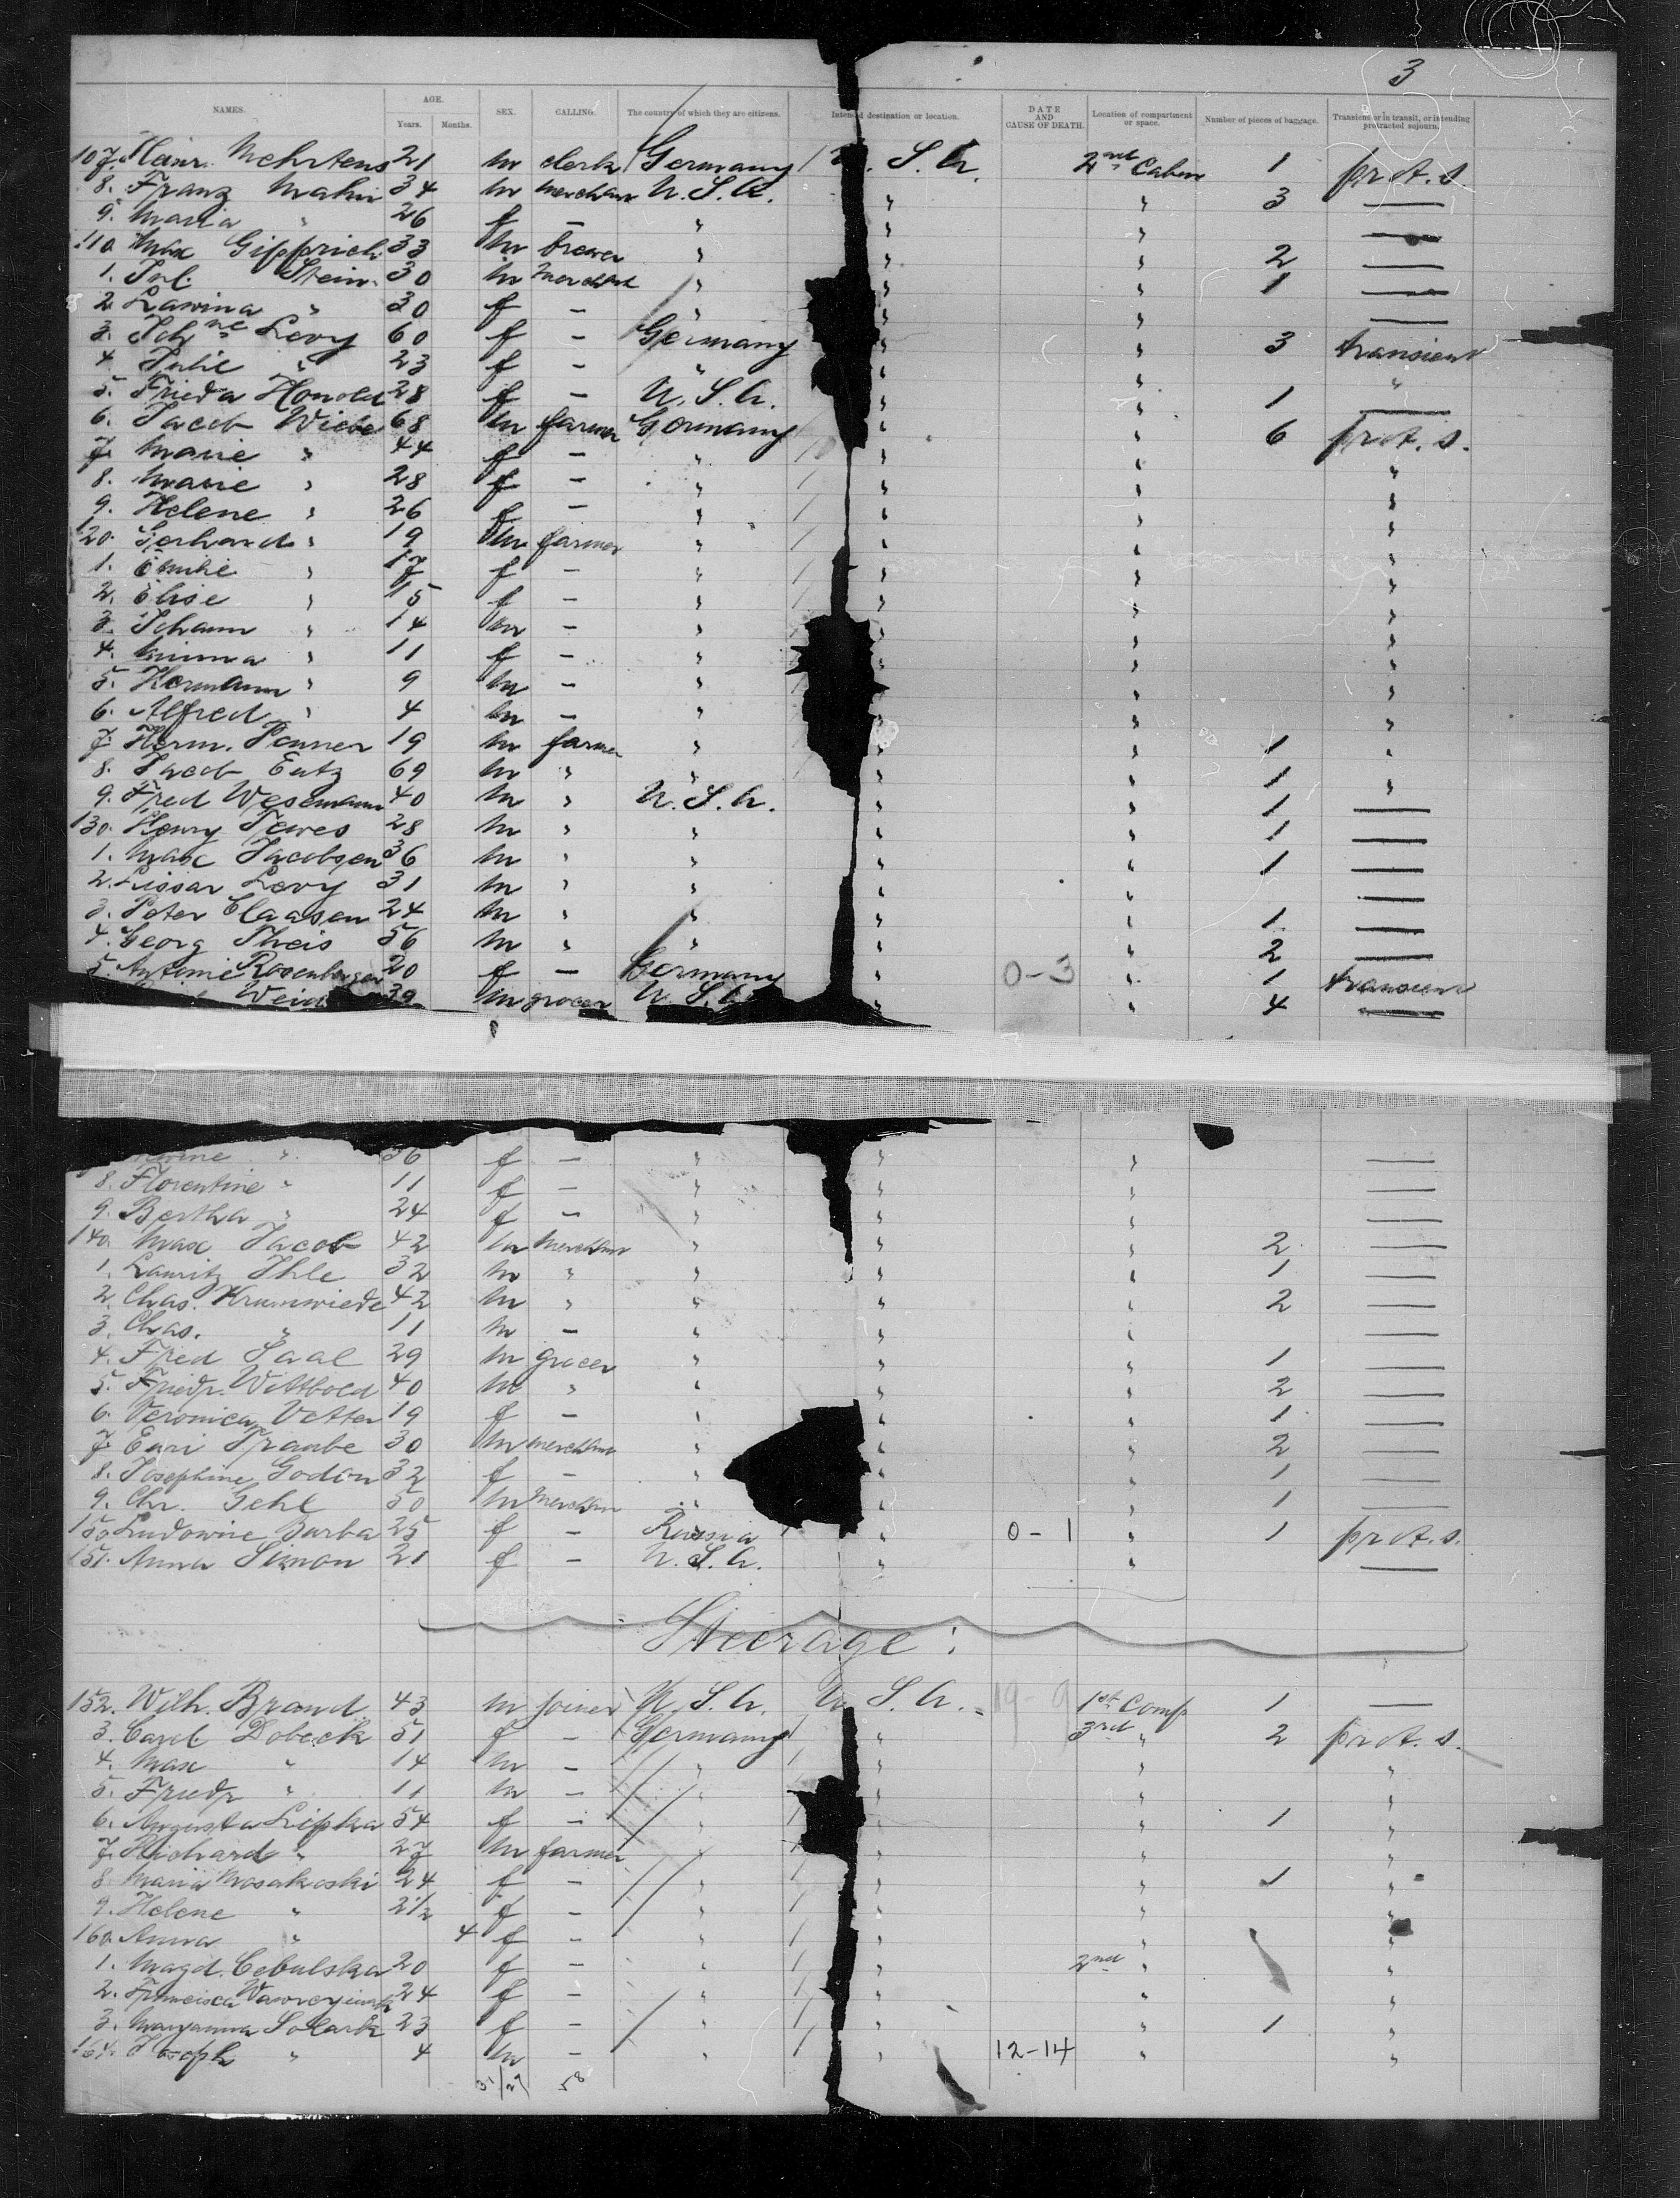 3
NAMES. AGE. Years. Months. SEX. CALLING. The country of which they are citizens. Intended destination or location. DATE AND CAUSE OF DEATH. Location of compartment or space. Number of pieces of baggage. Transient or in transit, or intending protracted sojourn.
107. Heinr. Mehrtens 21 m clerk Germany U. S. A. 2nd Cabin 1 prot. s
8. Franz Mahn 34 m merchant U. S. A. " " 3 —
9. Maria " 26 f — " " " —
110. Max Gipprich 33 m brewer " " " 2 —
1. Jul. Stein 30 m merchant " " " 1 —
2. Lawina " 30 f — " " " —
3. Johne Levy 60 f — Germany " " 3 transient
4. Julie " 23 f — " " " "
5. Frieda Honold 28 f — U. S. A. " " 1 —
6. Jacob Wiebe 68 m farmer Germany " " 6 prot. s.
7. Marie " 44 f — " " " "
8. Marie " 28 f — " " " "
9. Helene " 26 f — " " " "
120. Gerhard " 19 m farmer " " " "
1. Emilie " 17 f — " " " "
2. Elise " 15 f — " " " "
3. Johann " 14 m — " " " "
4. Minna " 11 f — " " " "
5. Hermann " 9 m — " " " "
6. Alfred " 4 m — " " " "
7. Herm. Penner 19 m farmer " " " 1 "
8. Jacob Eutz 69 m " " " " 1 "
9. Fred Wesemann 40 m " U. S. A. " " 1 —
130. Henry Tewes 28 m " " " " 1 —
1. Max Jacobsen 36 m " " " " 1 —
2. Lissar Levy 31 m " " " " —
3. Peter Claasen 24 m " " " " 1 —
4. Georg Theis 56 m " " " " 2 —
5. Antonie Rosenberger 20 f — Germany " 0-3 " 1 transient
39 m grocer U. S. A. " " 4 —
" 36 f — " " " —
8. Florentine " 11 f — " " " —
9. Bertha " 24 f — " " " —
140. Max Jacob 42 m merchant " " " 2 —
1. Lauritz Ihle 32 m " " " " 1 —
2. Chas. Krumwiede 42 m " " " " 2 —
3. Chas. " 11 m — " " " —
4. Fred Saal 29 m grocer " " " 1 —
5. Friedr. Wittbold 40 m " " " " 2 —
6. Veronica Vetter 19 f — " " " 1 —
7. Emri Traube 30 m merchant " " " 2 —
8. Josephine Godon 32 f — " " " 1 —
9. Chr. Gehl 50 m merchant " " " 1 —
150. Ludowine Burba 25 f — Russia " 0-1 " 1 prot. s.
151. Anna Simon 21 f — U. S. A. " " —
Steerage:
152. Wilh. Brand 43 m joiner U. S. A. U. S. A. 19-9 1st Comp 1 —
3. Carol. Dobeck 51 f — Germany " 3rd " 2 prot. s.
4. Max " 14 m — " " " "
5. Friedr " 11 m — " " " "
6. Augusta Lipka 54 f — " " " 1 "
7. Richard " 27 m farmer " " " "
8. Maria Mosakoski 24 f — " " " 1 "
9. Helene " 2 1/2 f — " " " "
160. Anna " 4 f — " " " "
1. Magd. Cebulska 20 f — " " 2nd " "
2. Francisca 24 f — " " " "
3. Maryanna Solarek 23 f — " " " 1 "
164. Joseph " 4 m — " " 12-14 " "
31/27 58